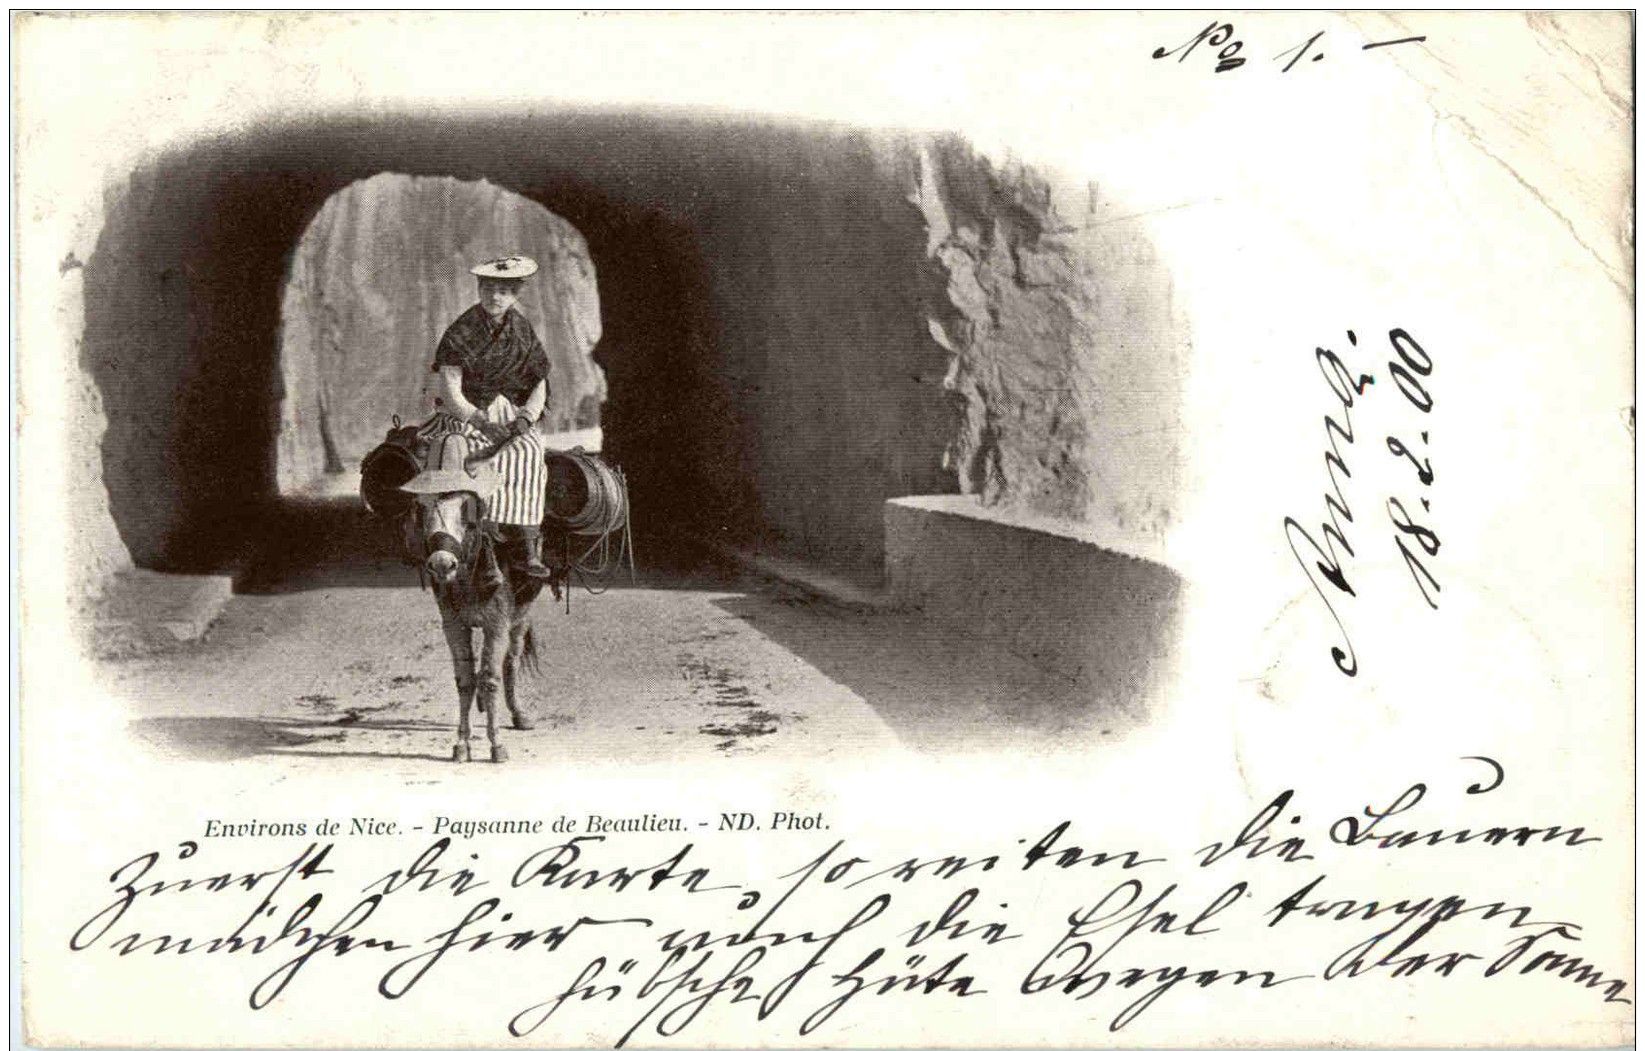 No 1. –
Anna.
18.2.00
Environs de Nice. - Paysanne de Beaulieu. - ND. Phot.
Zuerst die Karte, so reiten die Bauern
mädchen hier, auch die Esel tragen
hübsche Hüte wegen der Sonne